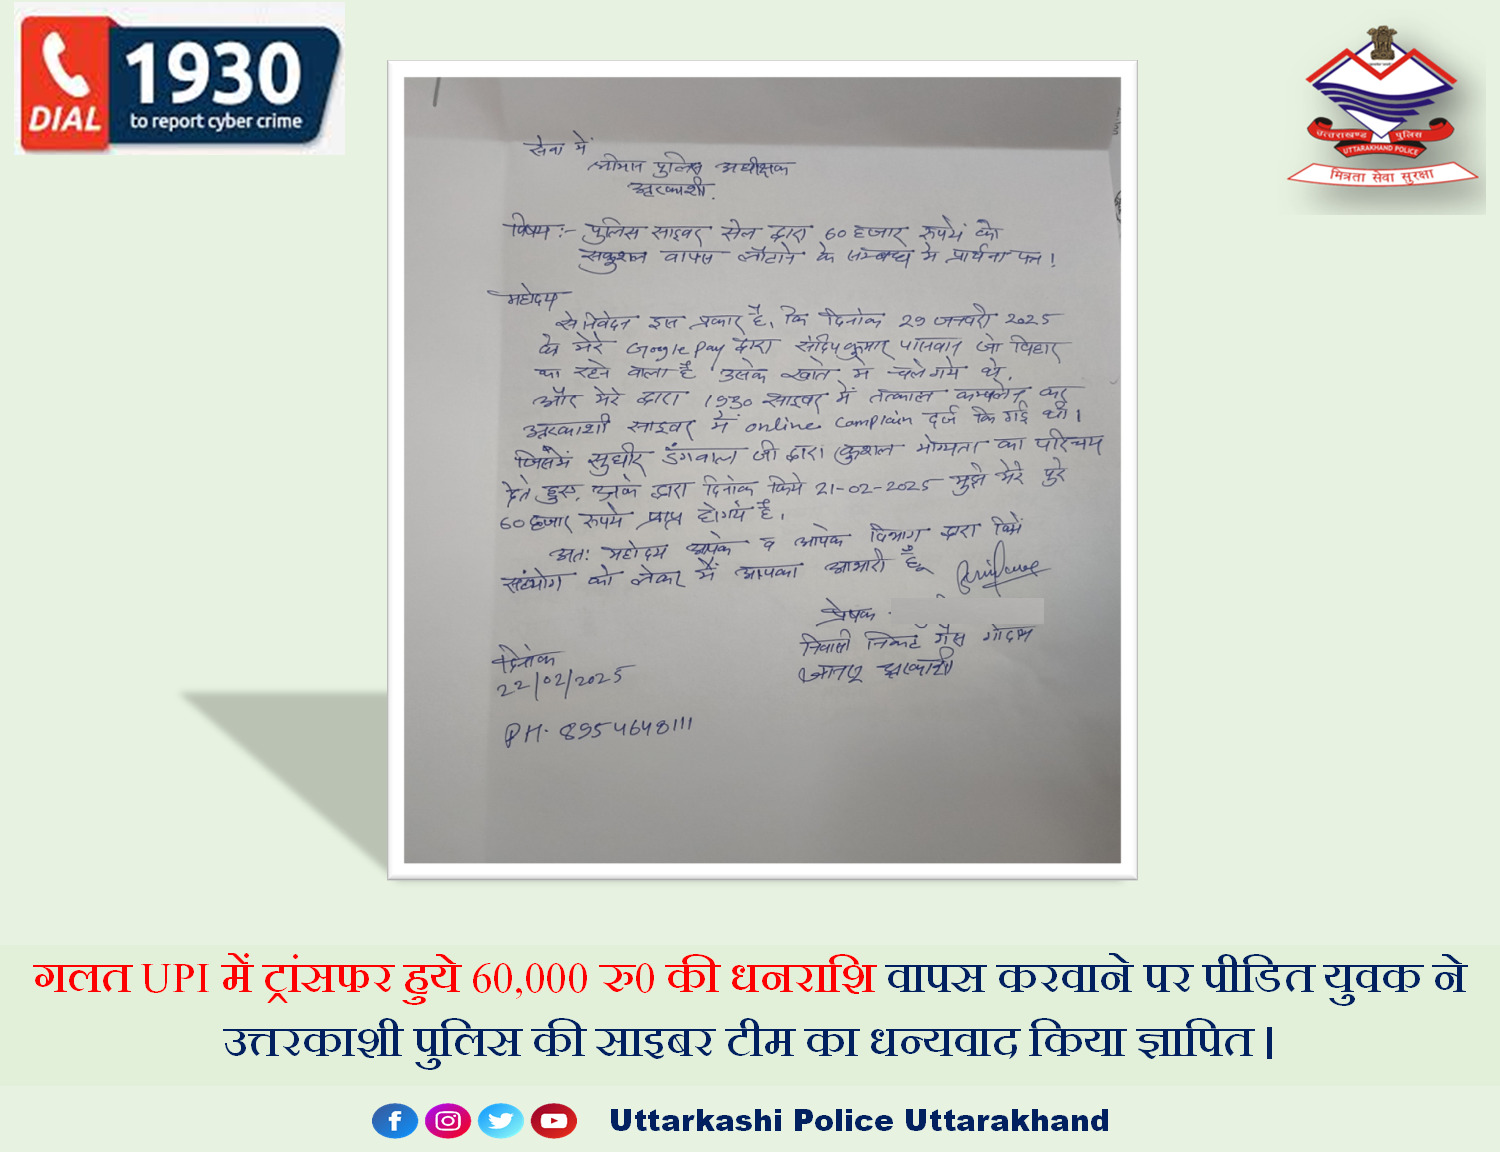 DIAL
1930
to report cyber crime
उत्तराखण्ड पुलिस
UTTARAKHAND POLICE
मित्रता सेवा सुरक्षा
सेवा में
श्रीमान पुलिस अधीक्षक
उत्तरकाशी.
विषय:- पुलिस साइबर सेल द्वारा 60 हजार रुपये को
सकुशल वापस लौटाने के सम्बन्ध मे प्रार्थना पत्र!
महोदय
से निवेदन इस प्रकार है, कि दिनांक 29 जनवरी 2025
को मेरे Google Pay द्वारा संदिप कुमार पासवान जो विहार
का रहने वाला है उसके खाते मे चले गये थे,
और मेरे द्वारा 1930 साइबर में तत्काल कम्पलेन कर
उत्तरकाशी साइबर में online complain दर्ज कि गई थी।
जिसमें सुधीर डंगवाल जी द्वारा कुशल योग्यता का परिचय
देते हुए, उनके द्वारा दिनांक 21-02-2025 मुझे मेरे पुरे
60 हजार रुपये प्राप्त हो गये है।
अतः महोदय आपके व आपके विभाग द्वारा किये
सहयोग को लेकर मैं आपका आभारी हूँ
प्रेषक
निवासी निकट गैस गोदाम
उत्तरकाशी
दिनांक
22/02/2025
PH. 8954648111
गलत UPI में ट्रांसफर हुये 60,000 रु0 की धनराशि वापस करवाने पर पीडित युवक ने
उत्तरकाशी पुलिस की साइबर टीम का धन्यवाद किया ज्ञापित।
Uttarkashi Police Uttarakhand